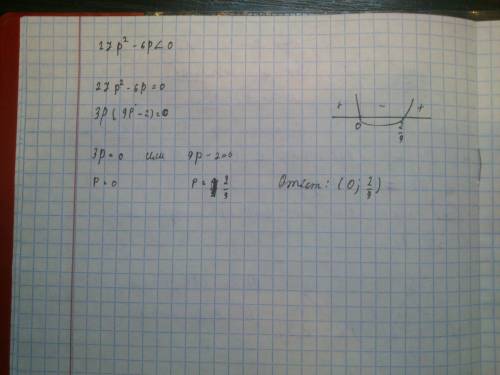 27p² - 6p < 0
27p² - 6p = 0
3p(9p - 2) = 0
3p = 0 или 9p - 2 = 0
p = 0 p = 2/9
+ - +
0 2/9
Ответ: (0; 2/9)